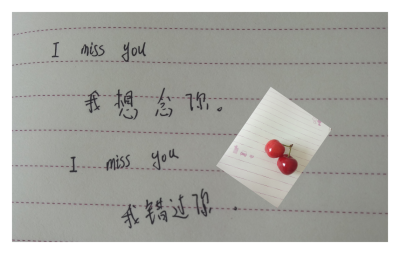 I miss you
我想念你。
I miss you
我错过你.